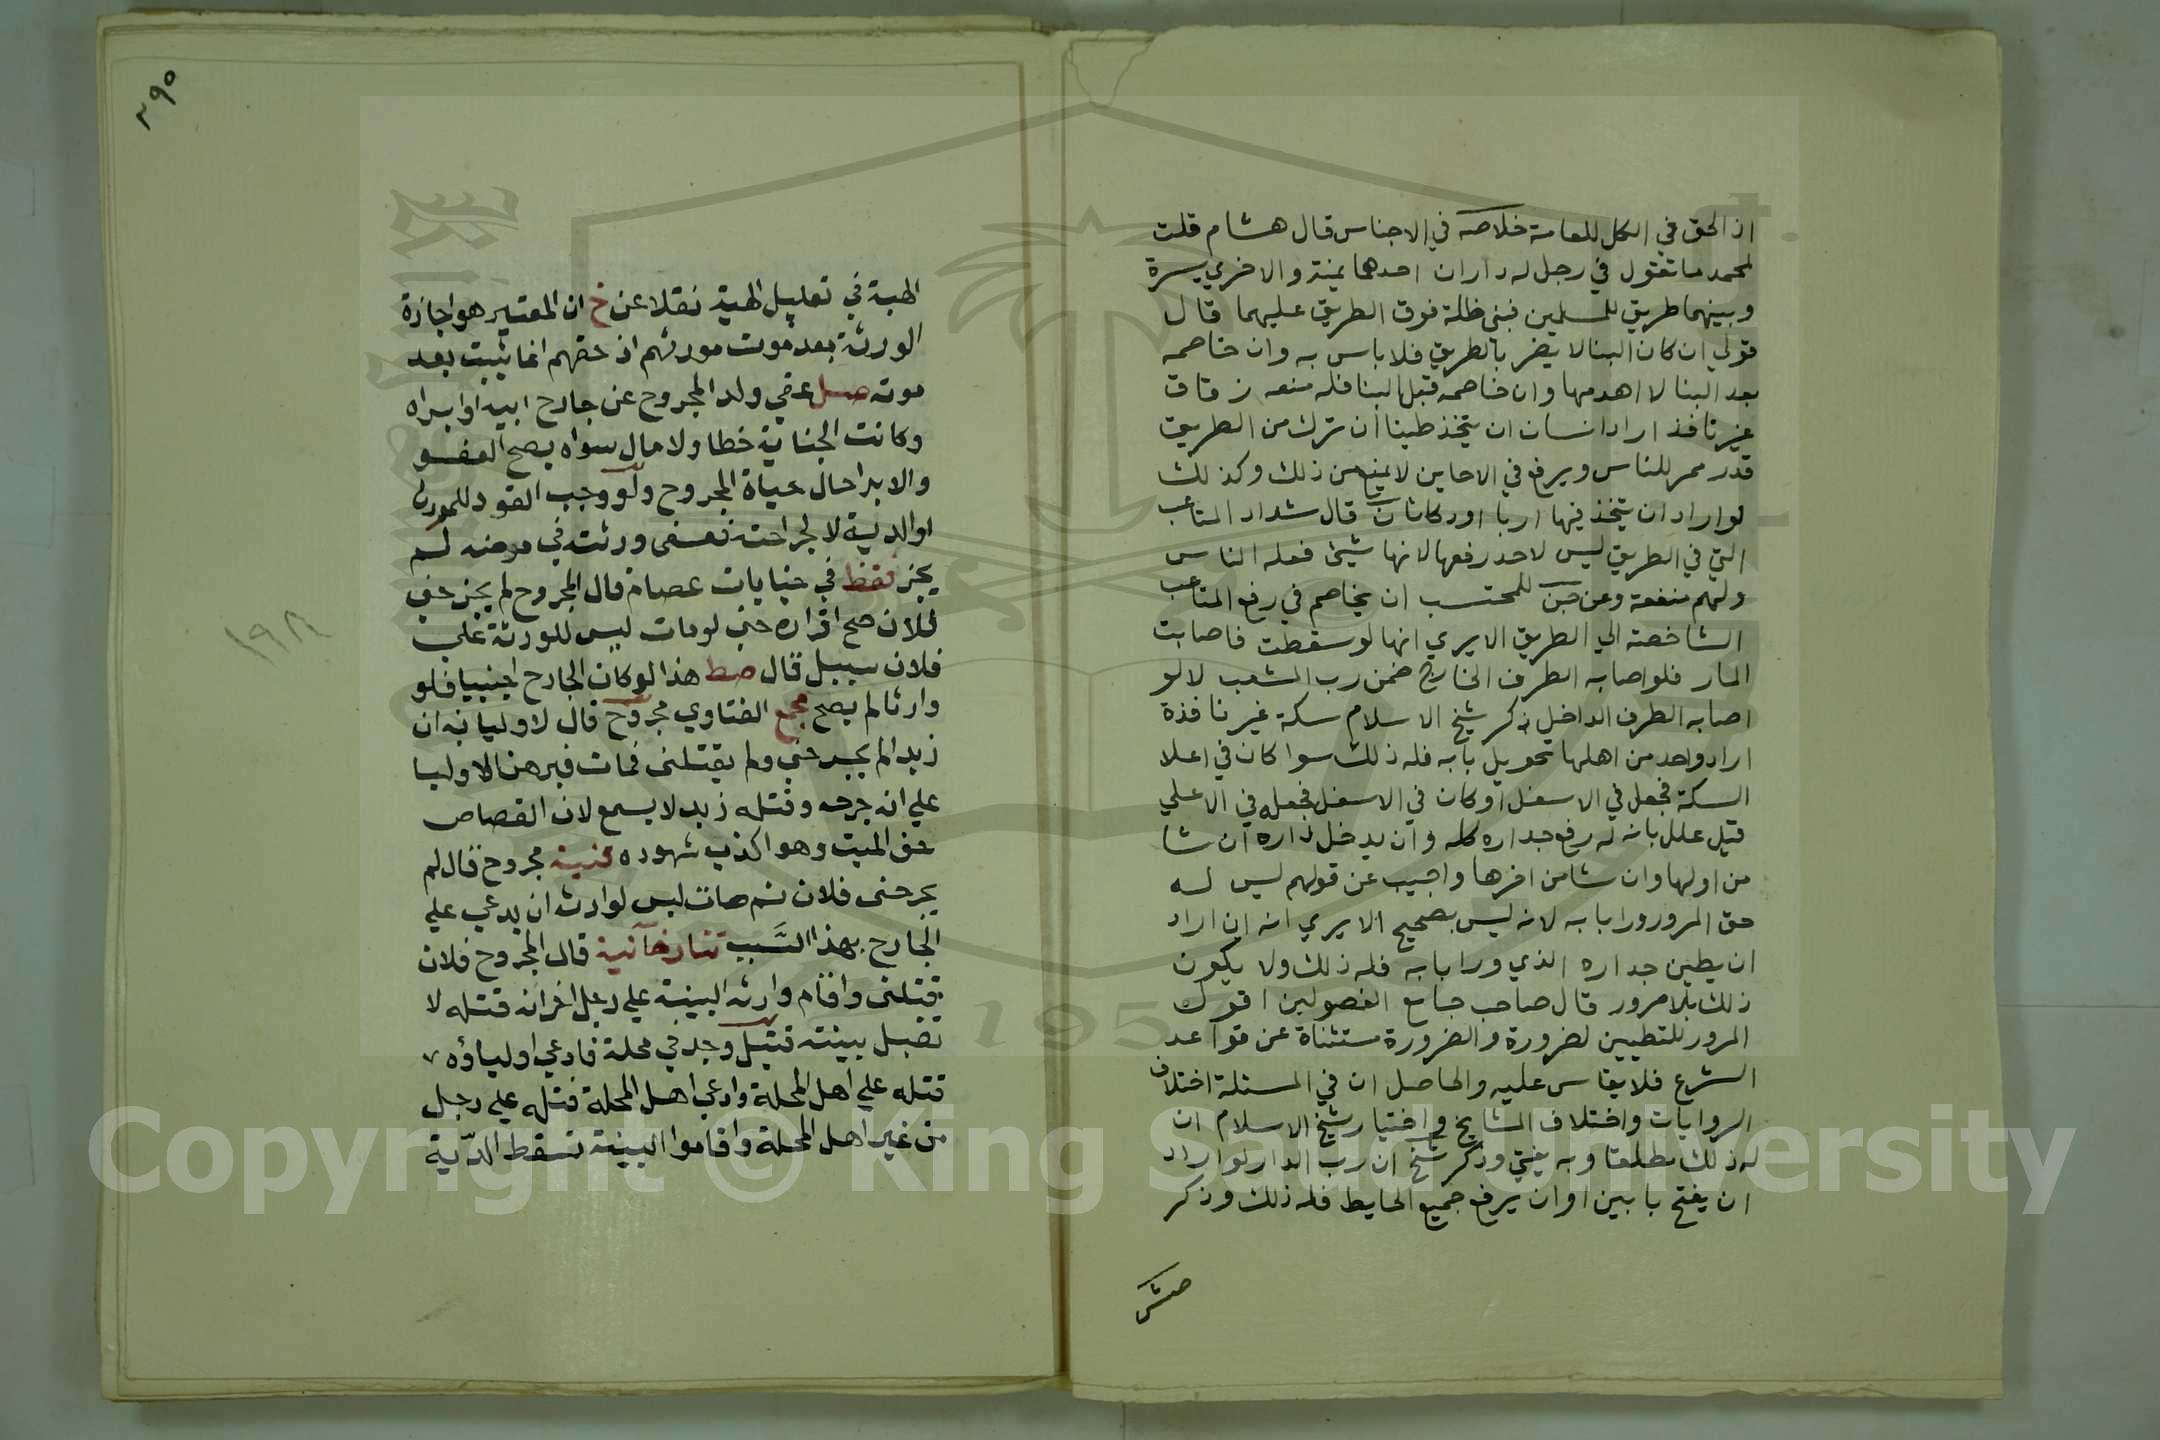 اذ الحق في الكل للعامة خلاصه في الاجناس قال هشام قلت
لمحمد ما تقول في رجل له داران احدهما يمنة والاخري يسرة
وبينهما طريق للمسلمين فبنى ظلة فوق الطريق عليهما قال
قولي ان كان البنا لا يضر بالطريق فلا باس به وان خاصمه
بعد البنا لا اهدمها وان خاصمه قبل البنا فله منعه زقاق
غير نافذ اراد انسان ان يتخذ طينا ان ترك من الطريق
قدر ممر للناس ويرفع في الاحاين لا يمنع من ذلك وكذلك
لو اراد ان يتخذ فيها اريا او دكانا قال شداد المتاعب
التي في الطريق ليس لاحد رفعها لانها شيئ فعله الناس
ولهم منفعة وعن للمحتسب ان يخاصم في رفع المتاعب
الشاخصة الي الطريق الا يري انها لو سقطت فاصابت
المار فلو اصابه الطرف الخارج ضمن رب المشعب لا لو
اصابه الطرف الداخل ذكر شيخ الاسلام سكة غير نافذة
اراد واحد من اهلها تحويل بابه فله ذلك سوا كان في اعلا
السكة فجعل في الاسفل او كان في الاسفل فجعله في الاعلي
قيل علل بانه له رفع جداره كله وان يدخل داره ان شا
من اولها وان شا من اخرها واجيب عن قولهم ليس له
حق المرور ورا بابه لانه ليس بصحيح الا يري انه ان اراد
ان يطين جداره الذي ورا بابه فله ذلك ولا يكون
ذلك بلا مرور قال صاحب جامع الفصولين اقول
المرور للتطيين لضرورة والضرورة مستثناة عن قواعد
الشرع فلا يقاس عليه والحاصل ان في المسئلة اختلاف
الروايات واختلاف المشايخ واختيار شيخ الاسلام ان
له ذلك مطلقا وبه يفتي وذكر شخ ان رب الدار لو اراد
ان يفتح بابين او ان يرفع جميع الحايط فله ذلك وذكر
٣٩٥
الهبة في تعليل الهبة نقلا عن خ ان المعتبر هو اجازة
الورثة بعد موت مورثهم اذ حقهم انما يثبت بعد
موته صل عفي ولد المجروح عن جارح ابيه او ابراه
وكانت الجناية خطا ولا مال سواه يصح العفو
والابرا حال حياة المجروح ولو وجب القود للمورث
او الدية لا لجراحته فعفى ورثته في مرضه لم
يجز فقظ في جنايات عصام قال المجروح لم يجرحني
فلان صح اقراره حتى لو مات ليس للورثة علي
فلان سبيل قال صط هذا لو كان الجارح اجنبيا فلو
وارثا لم يصح مجمع الفتاوي مجروح قال لاوليائه ان
زيدا لم يجرحني ولم يقتلنى فمات فبرهن الاوليا
علي انه جرحه وقتله زيد لا يسمع لان القصاص
حق الميت وهو اكذب شهوده قنية مجروح قال لم
يجرحنى فلان ثم مات ليس لوارثه ان يدعي علي
الجارح بهذا السَّبب تتارخانية قال المجروح فلان
قتلنى واقام وارثه البينة علي رجل اخر انه قتله لا
تقبل بينته قتيل وجد في محلة فادعي اولياؤه
قتله علي اهل المحلة وادعي اهل المحلة قتله علي رجل
من غير اهل المحلة واقاموا البينة تسقط الدّية
١٩٨
1957
Copyright © King Saud University